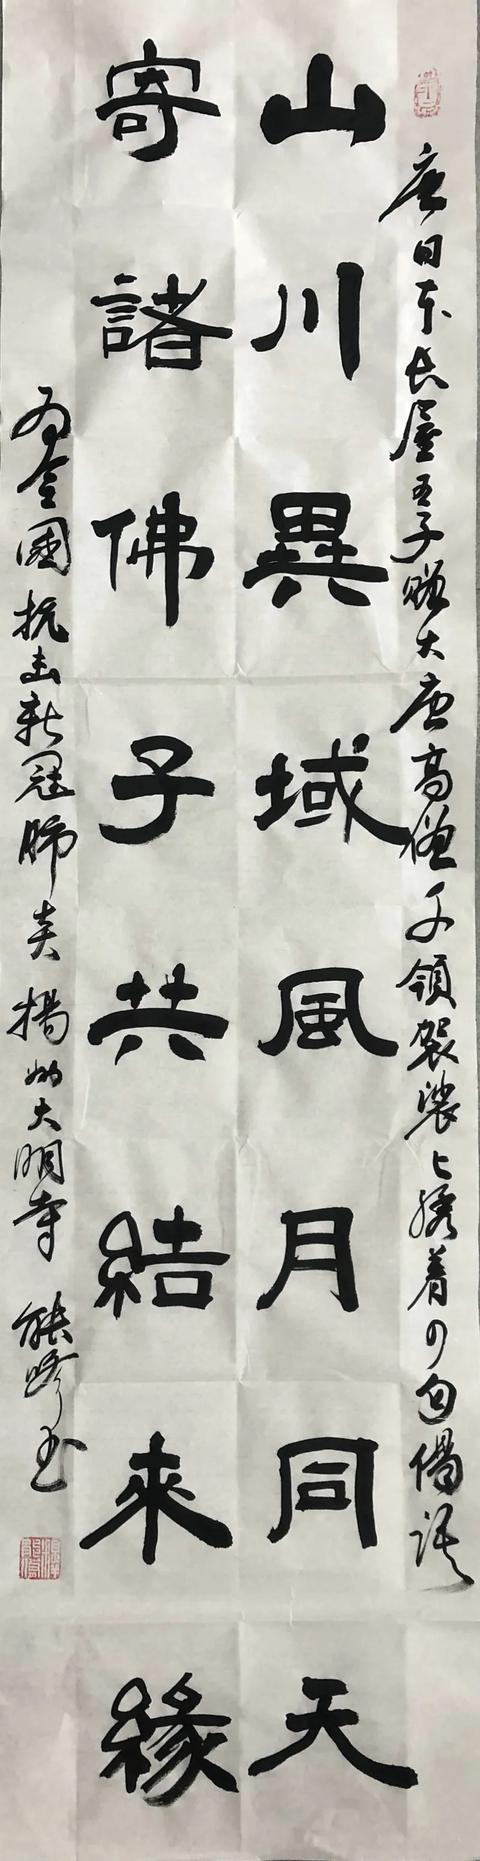 唐日本长屋王子赠大唐高僧千领袈裟上绣着四句偈语
山川異域風月同天
寄諸佛子共結來緣
为全國抗击新冠肺炎揚州大明寺能修书